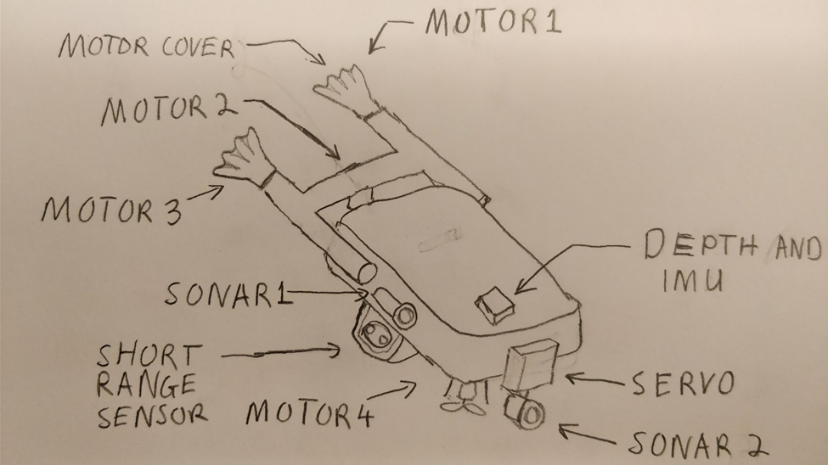 MOTOR 1
MOTOR COVER
MOTOR 2
MOTOR 3
DEPTH AND
IMU
SONAR 1
SHORT
RANGE
SENSOR
MOTOR 4
SERVO
SONAR 2